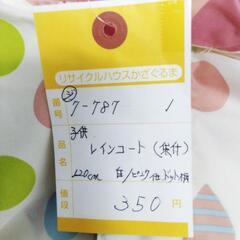 リサイクルハウスかざぐるま
番号 ㋛ 7-787 1
品名 子供
レインコート(袋付)
120cm 白/ピンク他ドット柄
値段 350円